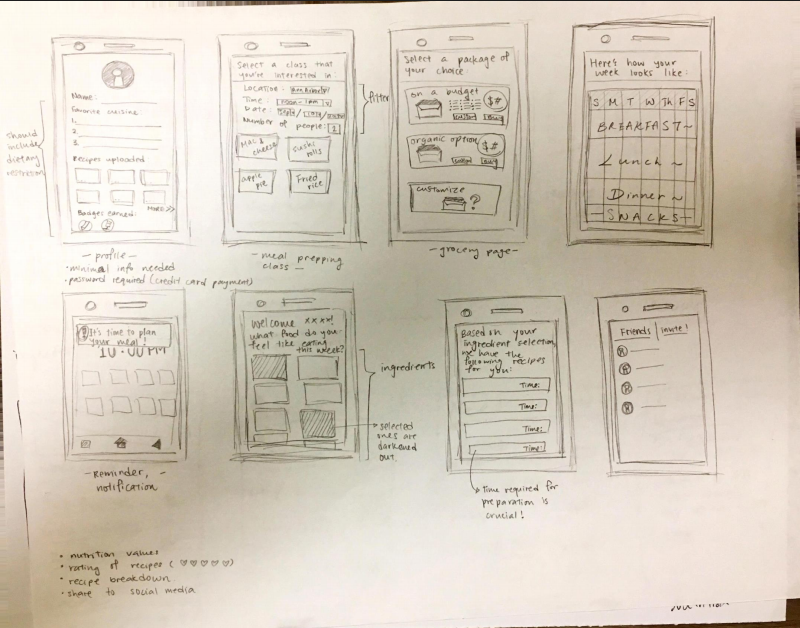 should
include
dietary
restriction
Name:
Favorite cuisine
1.
2.
3.
Recipes uploaded
MORE >>
Badges earned:
- profile -
• minimal info needed
• password required (credit card payment)
Select a class that
you're interested in:
Location:
Time: 10am - 1pm
Date:
Number of people: 1
filter
Mac &
cheese
sushi
rolls
apple
pie
Fried
rice
- meal prepping
class -
Select a package of
your choice:
on a budget
$#
organic option
$#
customize
?
- grocery page -
Here's how your
week looks like:
S M T W Th F S
BREAKFAST ~
Lunch ~
Dinner ~
- SNACKS -
It's time to plan
your meal!
10:00 PM
- Reminder, -
notification
Welcome xxxx!
what food do you
feel like eating
this week?
ingredients
selected
ones are
darkened
out.
Based on your
ingredient selection,
we have the
following recipes
for you:
Time:
Time:
Time:
Time:
Time required for
preparation is
crucial!
Friends
Invite!
• nutrition values
• rating of recipes (♡♡♡♡♡)
• recipe breakdown
• share to social media